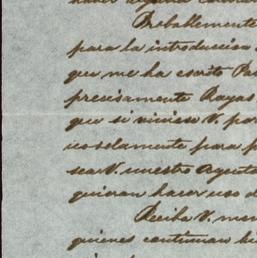 haber alguna
Probablemente
para la introduccion
que me ha escrito
precisamente Rayas
que si viniese V. por
para
sea V. nuestro
quieran hacer uso d
Reciba V.
quienes continuan